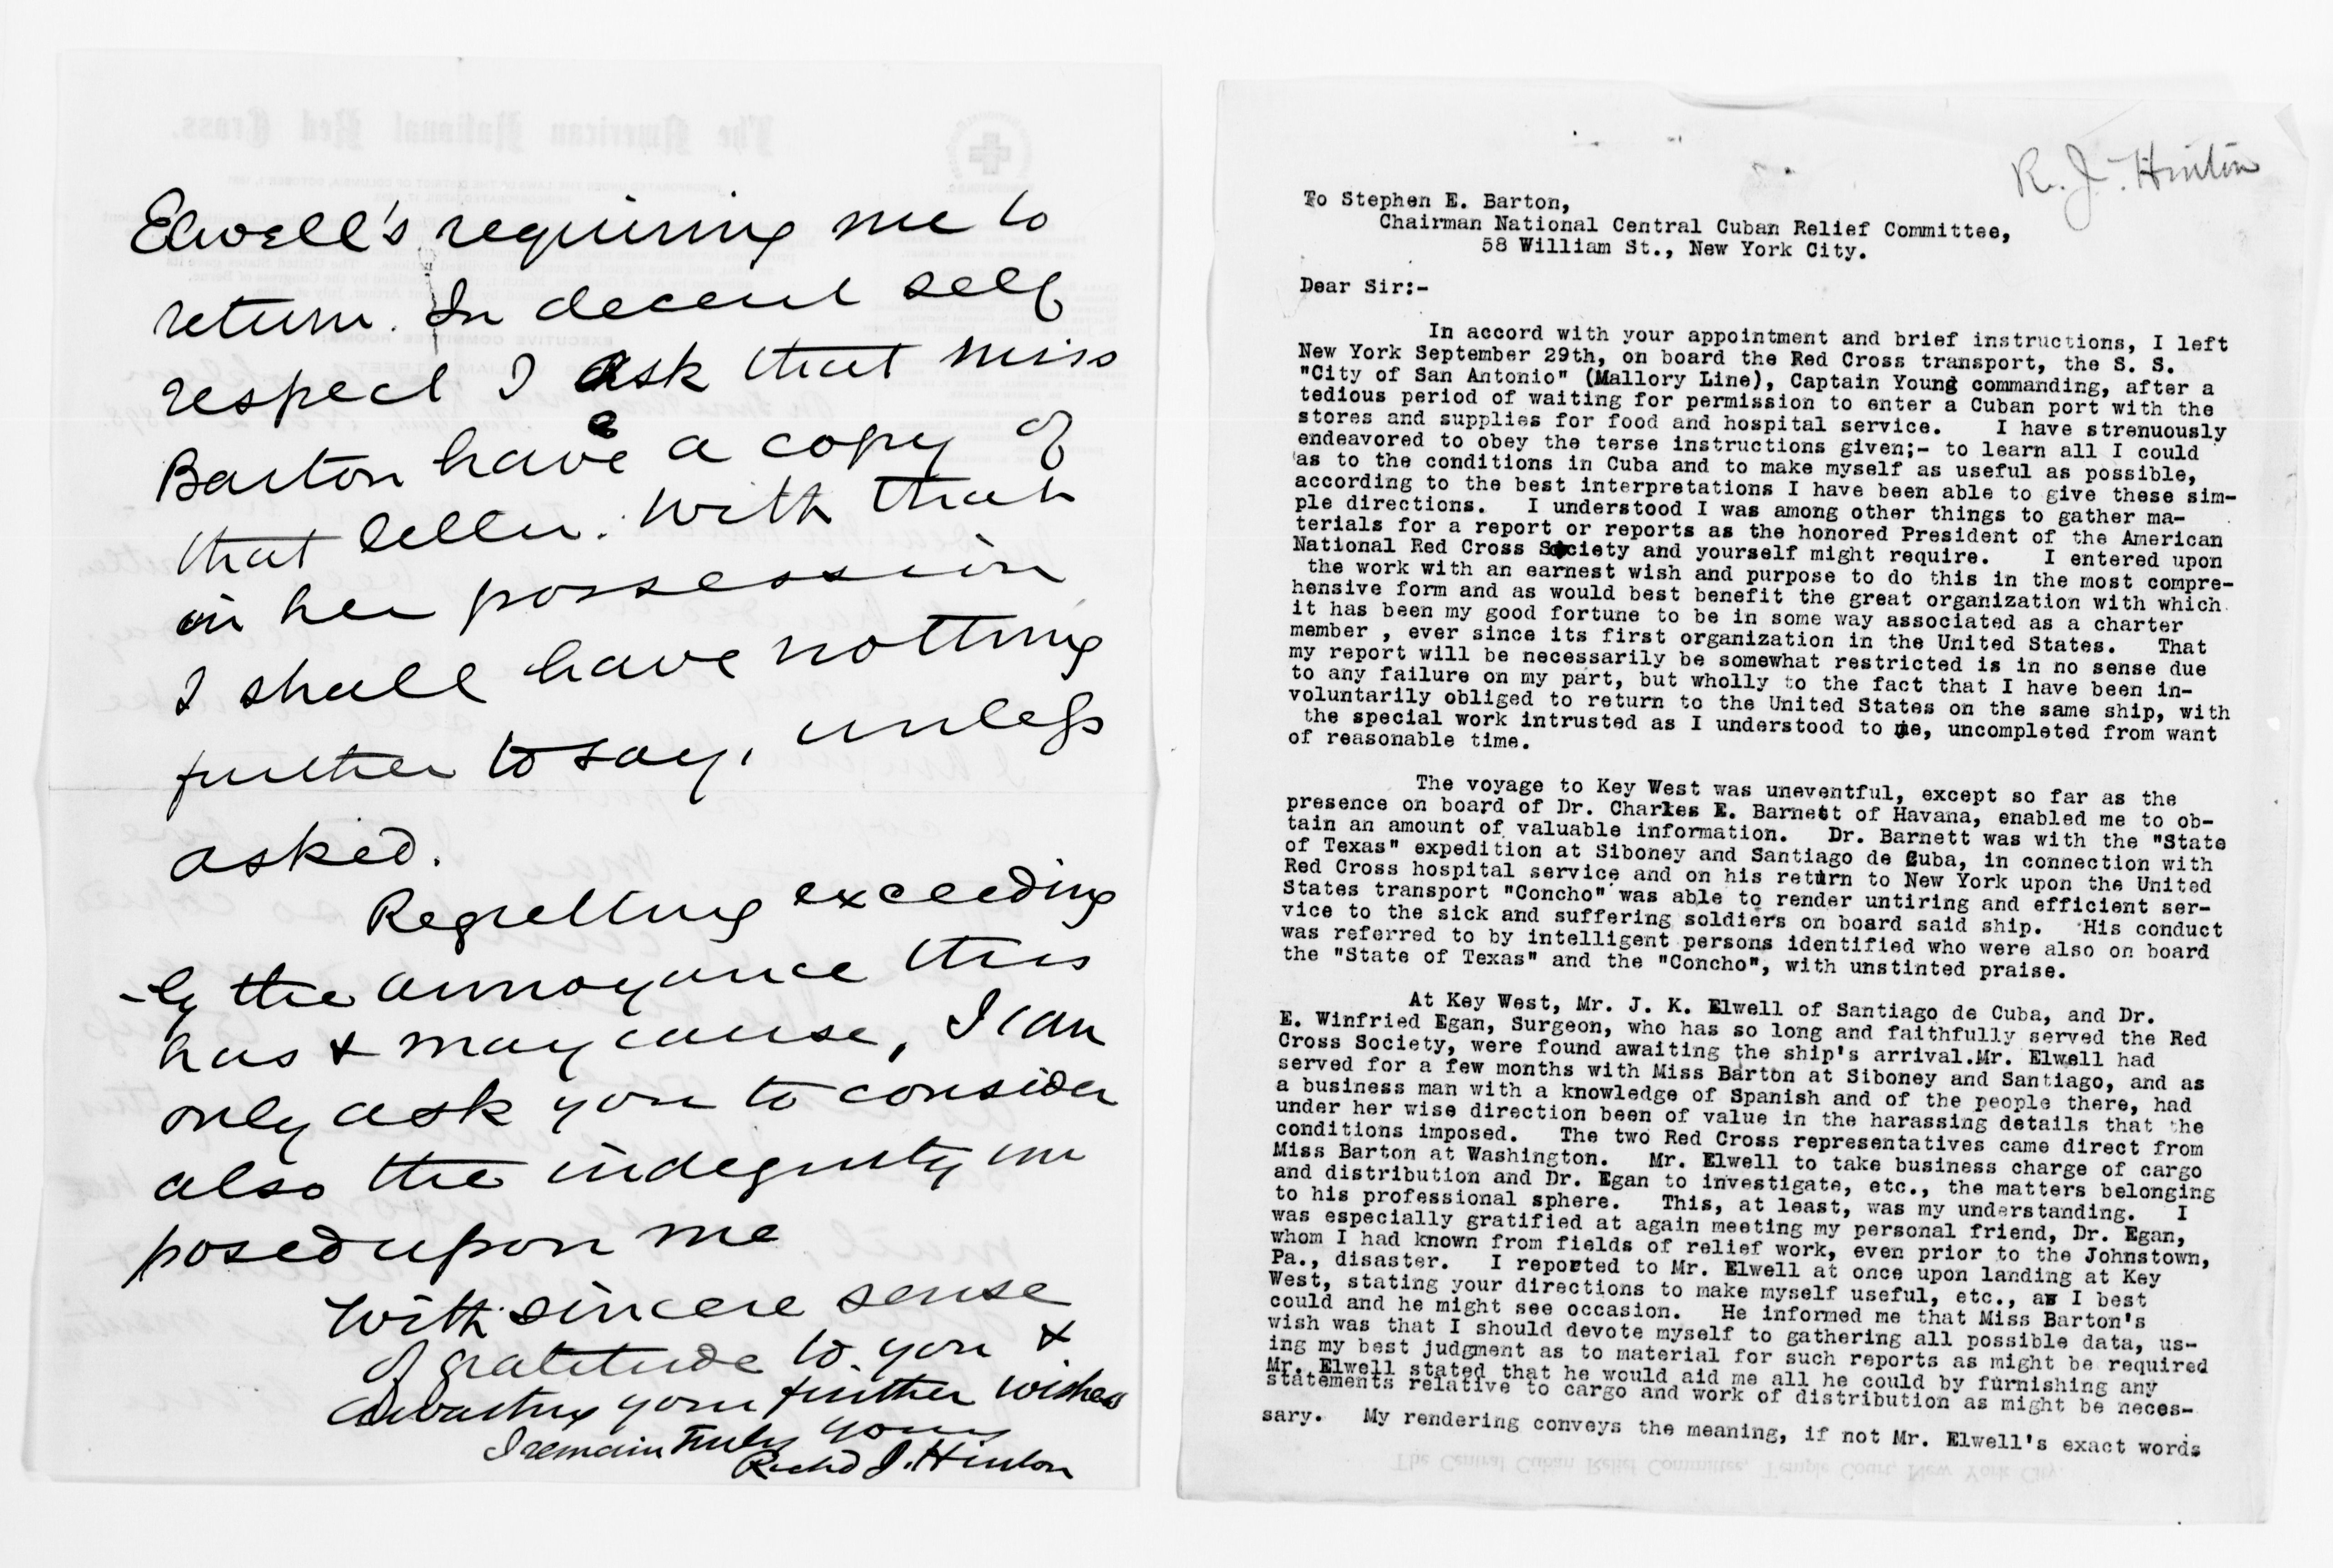 Elwell's requiring me to
return. In decent self
respect I ask that Miss
Barton have a copy of
that letter. With that
in her possession
I shall have nothing
further to say, unless
asked.
Regretting exceeding
-ly the annoyance this
has & may cause, I can
only ask you to consider
also the indegnity im
posed upon me
With sincere sense
of gratitude to you &
awaiting your further wishes
I remain truly yours
Richd J. Hinton
The American National Red Cross.
R. J. Hinton
To Stephen E. Barton,
Chairman National Central Cuban Relief Committee,
58 William St., New York City.
Dear Sir:-
In accord with your appointment and brief instructions, I left
New York September 29th, on board the Red Cross transport, the S. S.
"City of San Antonio" (Mallory Line), Captain Young commanding, after a
tedious period of waiting for permission to enter a Cuban port with the
stores and supplies for food and hospital service. I have strenuously
endeavored to obey the terse instructions given;- to learn all I could
as to the conditions in Cuba and to make myself as useful as possible,
according to the best interpretations I have been able to give these sim-
ple directions. I understood I was among other things to gather ma-
terials for a report or reports as the honored President of the American
National Red Cross Society and yourself might require. I entered upon
the work with an earnest wish and purpose to do this in the most compre-
hensive form and as would best benefit the great organization with which
it has been my good fortune to be in some way associated as a charter
member , ever since its first organization in the United States. That
my report will be necessarily be somewhat restricted is in no sense due
to any failure on my part, but wholly to the fact that I have been in-
voluntarily obliged to return to the United States on the same ship, with
the special work intrusted as I understood to me, uncompleted from want
of reasonable time.
The voyage to Key West was uneventful, except so far as the
presence on board of Dr. Charles E. Barnett of Havana, enabled me to ob-
tain an amount of valuable information. Dr. Barnett was with the "State
of Texas" expedition at Siboney and Santiago de Cuba, in connection with
Red Cross hospital service and on his return to New York upon the United
States transport "Concho" was able to render untiring and efficient ser-
vice to the sick and suffering soldiers on board said ship. His conduct
was referred to by intelligent persons identified who were also on board
the "State of Texas" and the "Concho", with unstinted praise.
At Key West, Mr. J. K. Elwell of Santiago de Cuba, and Dr.
E. Winfried Egan, Surgeon, who has so long and faithfully served the Red
Cross Society, were found awaiting the ship's arrival.Mr. Elwell had
served for a few months with Miss Barton at Siboney and Santiago, and as
a business man with a knowledge of Spanish and of the people there, had
under her wise direction been of value in the harassing details that the
conditions imposed. The two Red Cross representatives came direct from
Miss Barton at Washington. Mr. Elwell to take business charge of cargo
and distribution and Dr. Egan to investigate, etc., the matters belonging
to his professional sphere. This, at least, was my understanding. I
was especially gratified at again meeting my personal friend, Dr. Egan,
whom I had known from fields of relief work, even prior to the Johnstown,
Pa., disaster. I reported to Mr. Elwell at once upon landing at Key
West, stating your directions to make myself useful, etc., as I best
could and he might see occasion. He informed me that Miss Barton's
wish was that I should devote myself to gathering all possible data, us-
ing my best judgment as to material for such reports as might be required
Mr. Elwell stated that he would aid me all he could by furnishing any
statements relative to cargo and work of distribution as might be neces-
sary. My rendering conveys the meaning, if not Mr. Elwell's exact words
The Central Cuban Relief Committee, Temple Court, New York City.